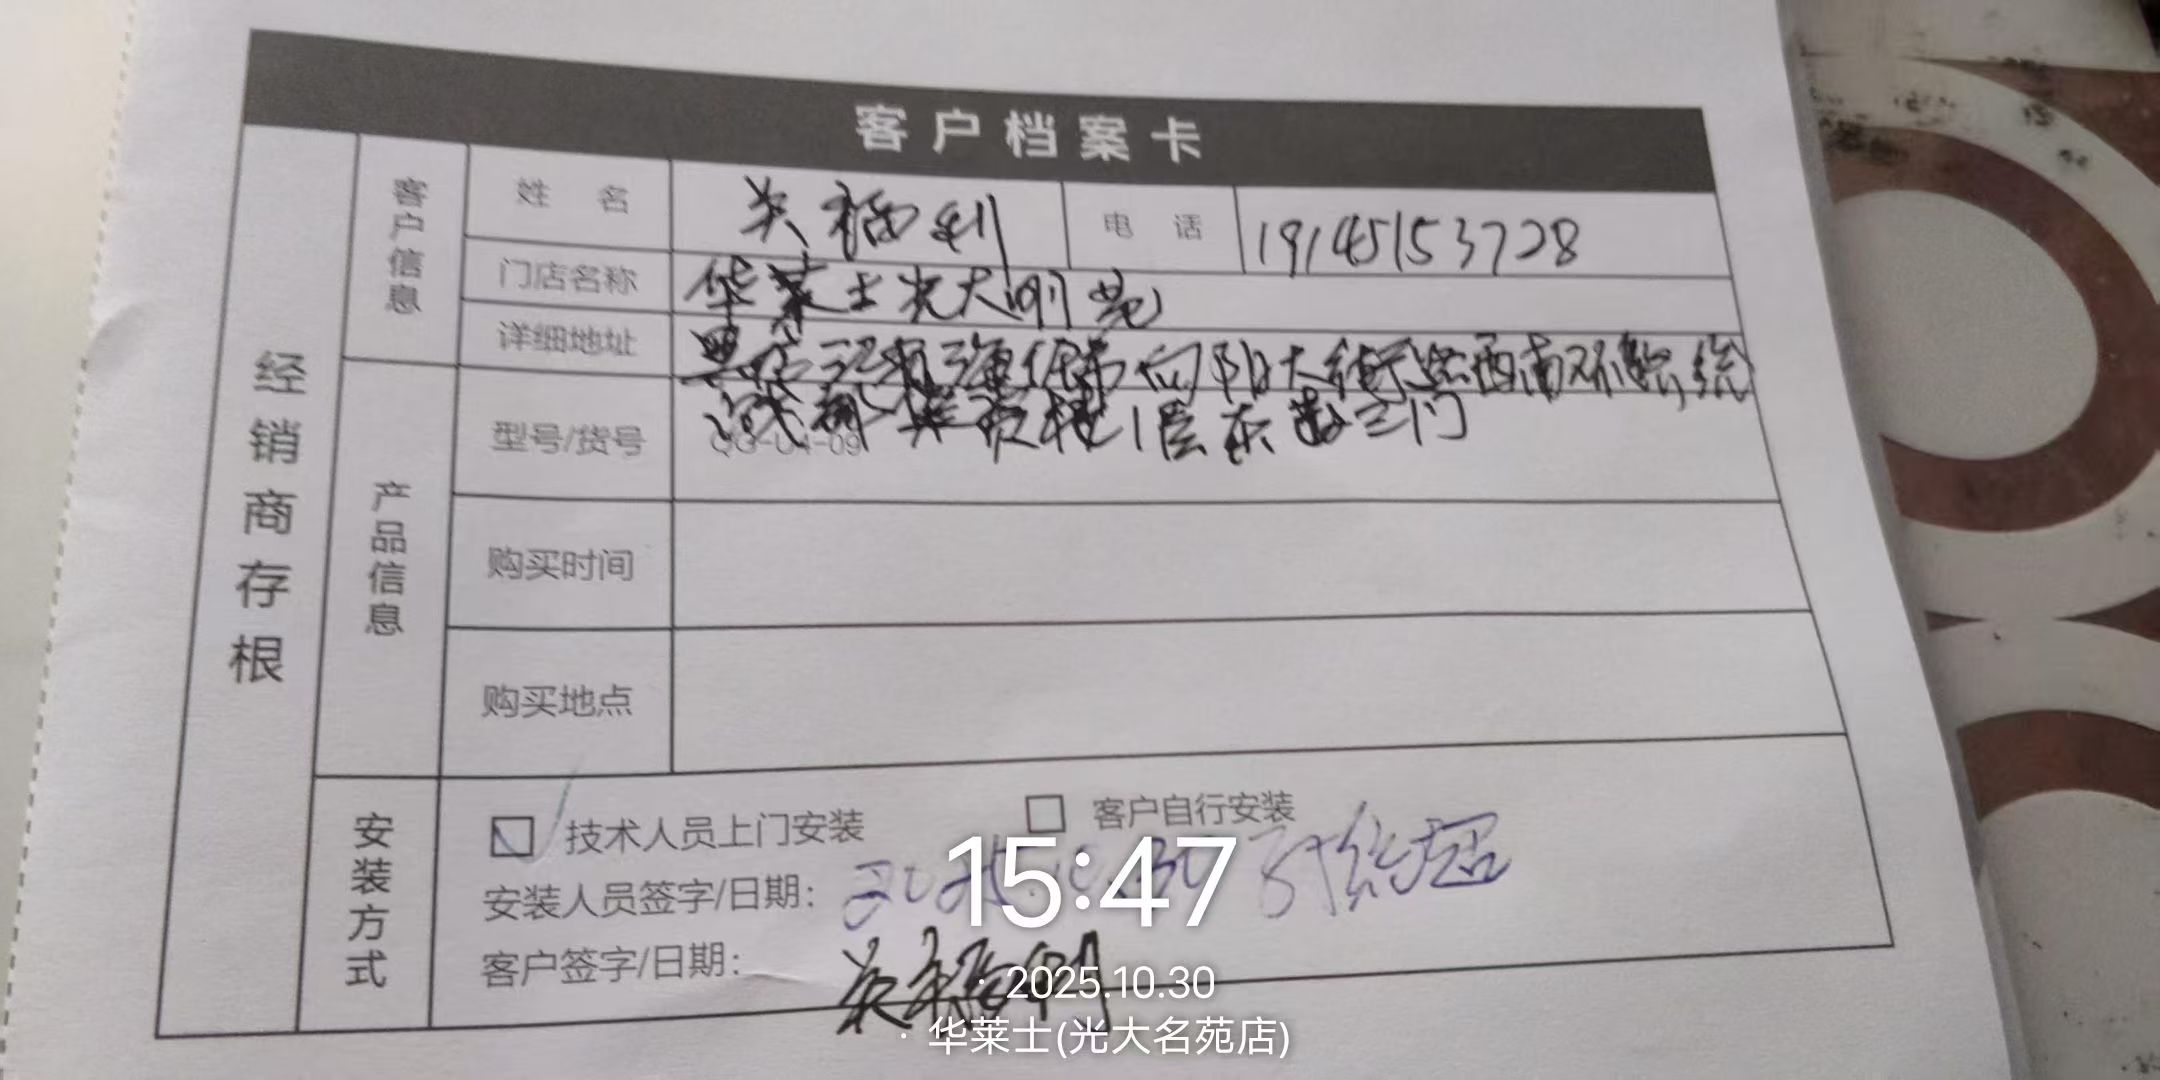 客户档案卡
经销商存根
客户信息
姓 名
电 话 19145153728
门店名称 华莱士光大明苑
详细地址 黑龙江省海伦市向阳大街
产品信息
型号/货号 1层东数三门
QG-U4-09
购买时间
购买地点
安装方式
技术人员上门安装 客户自行安装
安装人员签字/日期:
客户签字/日期:
15:47
2025.10.30
华莱士(光大名苑店)